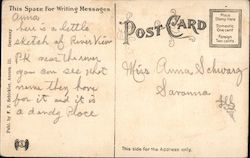 This Space For Writing Messages
Anna
here is a little
sketch of River View
PK near the river
you can see what
name they have
for it and it is
a dandy Place
Germany
POST CARD
Place Stamp Here
Domestic One cent
Foreign Two cents
Miss Anna Schwarz
Savanna
Ills
This side for the Address only.